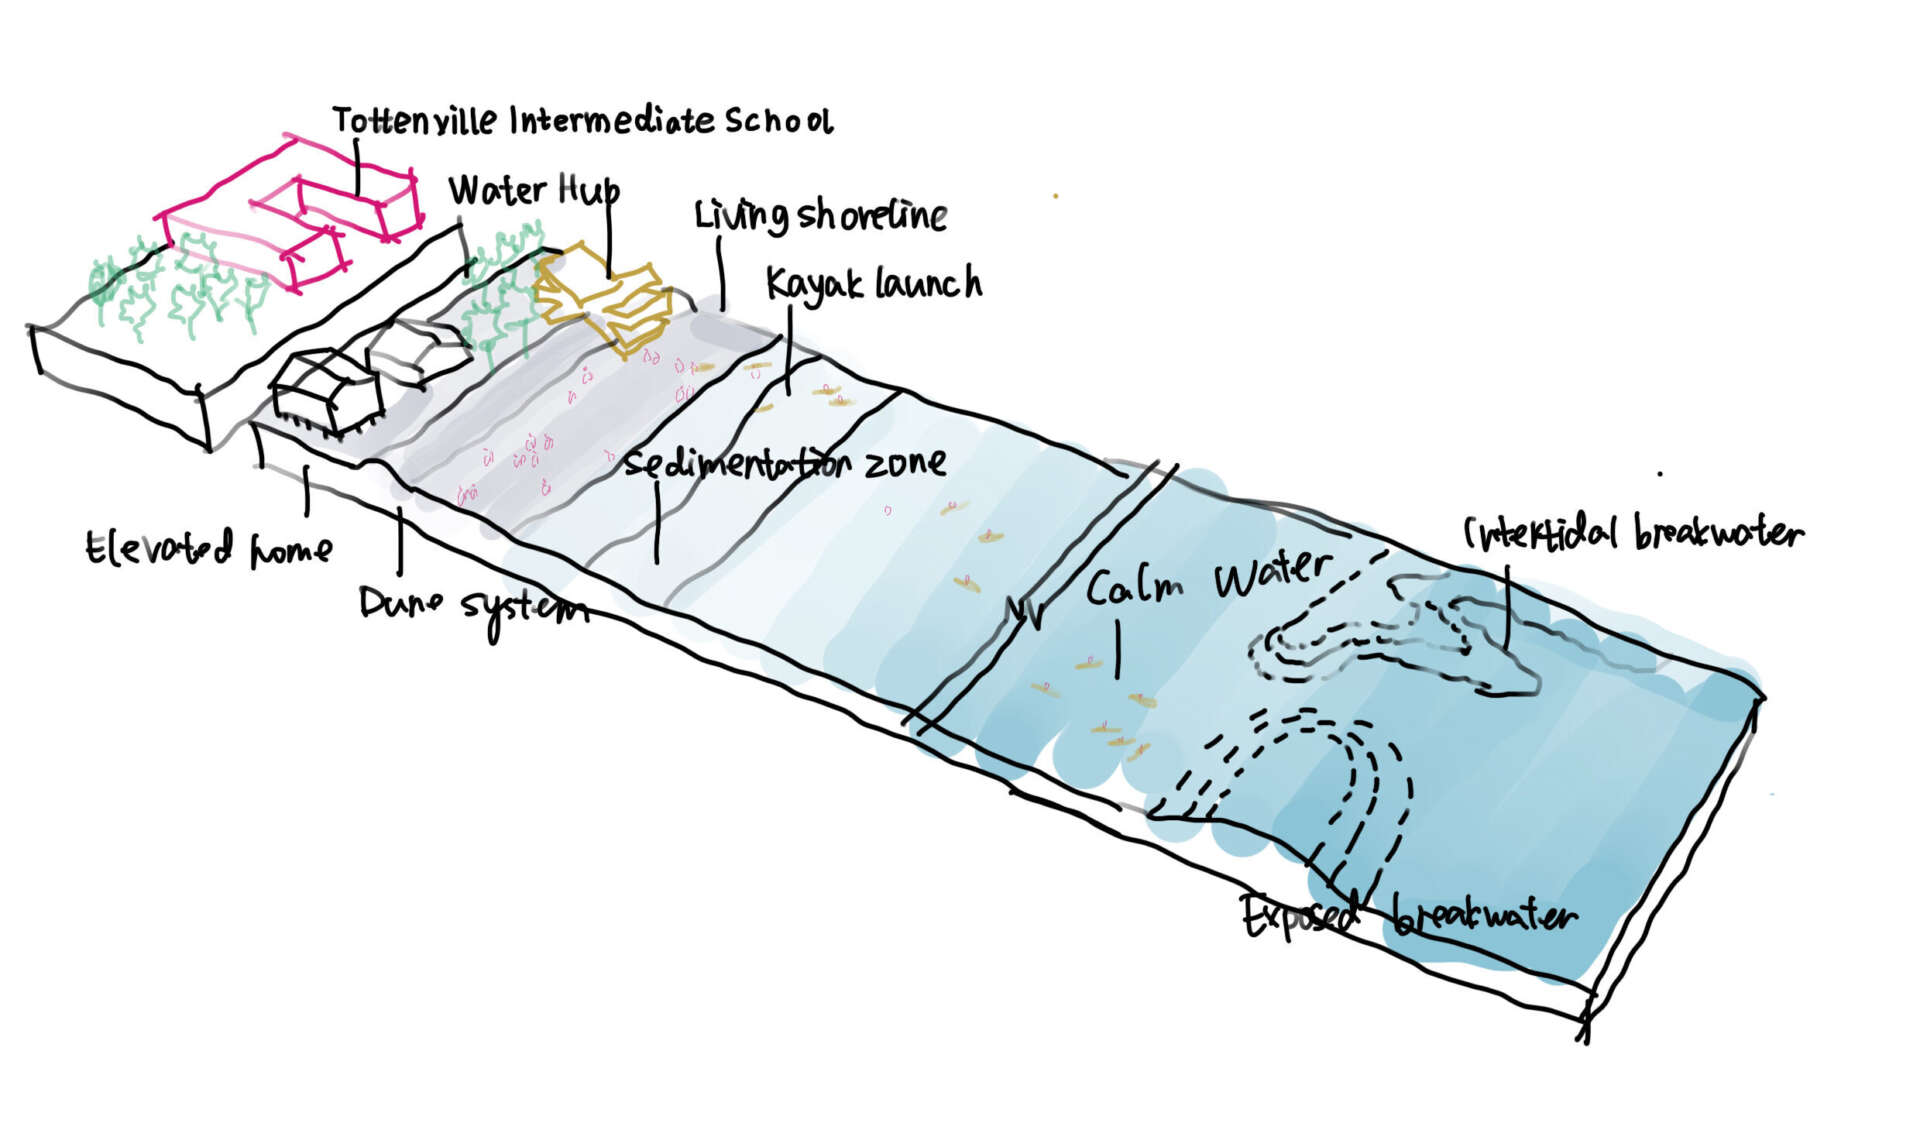 Tottenville Intermediate School
Water Hub
Living shoreline
Kayak launch
Sedimentation zone
Elevated home
Dune system
Calm Water
Intertidal breakwater
Exposed breakwater